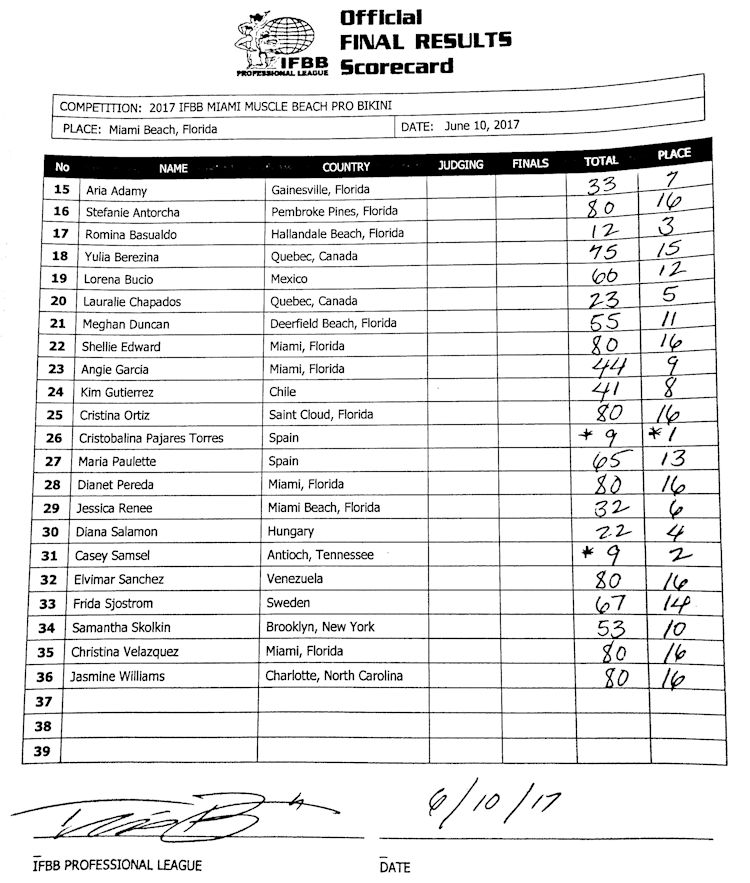 Official
FINAL RESULTS
Scorecard
IFBB
PROFESSIONAL LEAGUE
COMPETITION: 2017 IFBB MIAMI MUSCLE BEACH PRO BIKINI
PLACE: Miami Beach, Florida DATE: June 10, 2017
No NAME COUNTRY JUDGING FINALS TOTAL PLACE
15 Aria Adamy Gainesville, Florida 33 7
16 Stefanie Antorcha Pembroke Pines, Florida 80 16
17 Romina Basualdo Hallandale Beach, Florida 12 3
18 Yulia Berezina Quebec, Canada 75 15
19 Lorena Bucio Mexico 60 12
20 Lauralie Chapados Quebec, Canada 23 5
21 Meghan Duncan Deerfield Beach, Florida 55 11
22 Shellie Edward Miami, Florida 80 16
23 Angie Garcia Miami, Florida 44 9
24 Kim Gutierrez Chile 41 8
25 Cristina Ortiz Saint Cloud, Florida 80 16
26 Cristobalina Pajares Torres Spain * 9 * 1
27 Maria Paulette Spain 65 13
28 Dianet Pereda Miami, Florida 80 16
29 Jessica Renee Miami Beach, Florida 32 6
30 Diana Salamon Hungary 22 4
31 Casey Samsel Antioch, Tennessee * 9 2
32 Elvimar Sanchez Venezuela 80 16
33 Frida Sjostrom Sweden 67 14
34 Samantha Skolkin Brooklyn, New York 53 10
35 Christina Velazquez Miami, Florida 80 16
36 Jasmine Williams Charlotte, North Carolina 80 16
37
38
39
6/10/17
IFBB PROFESSIONAL LEAGUE DATE